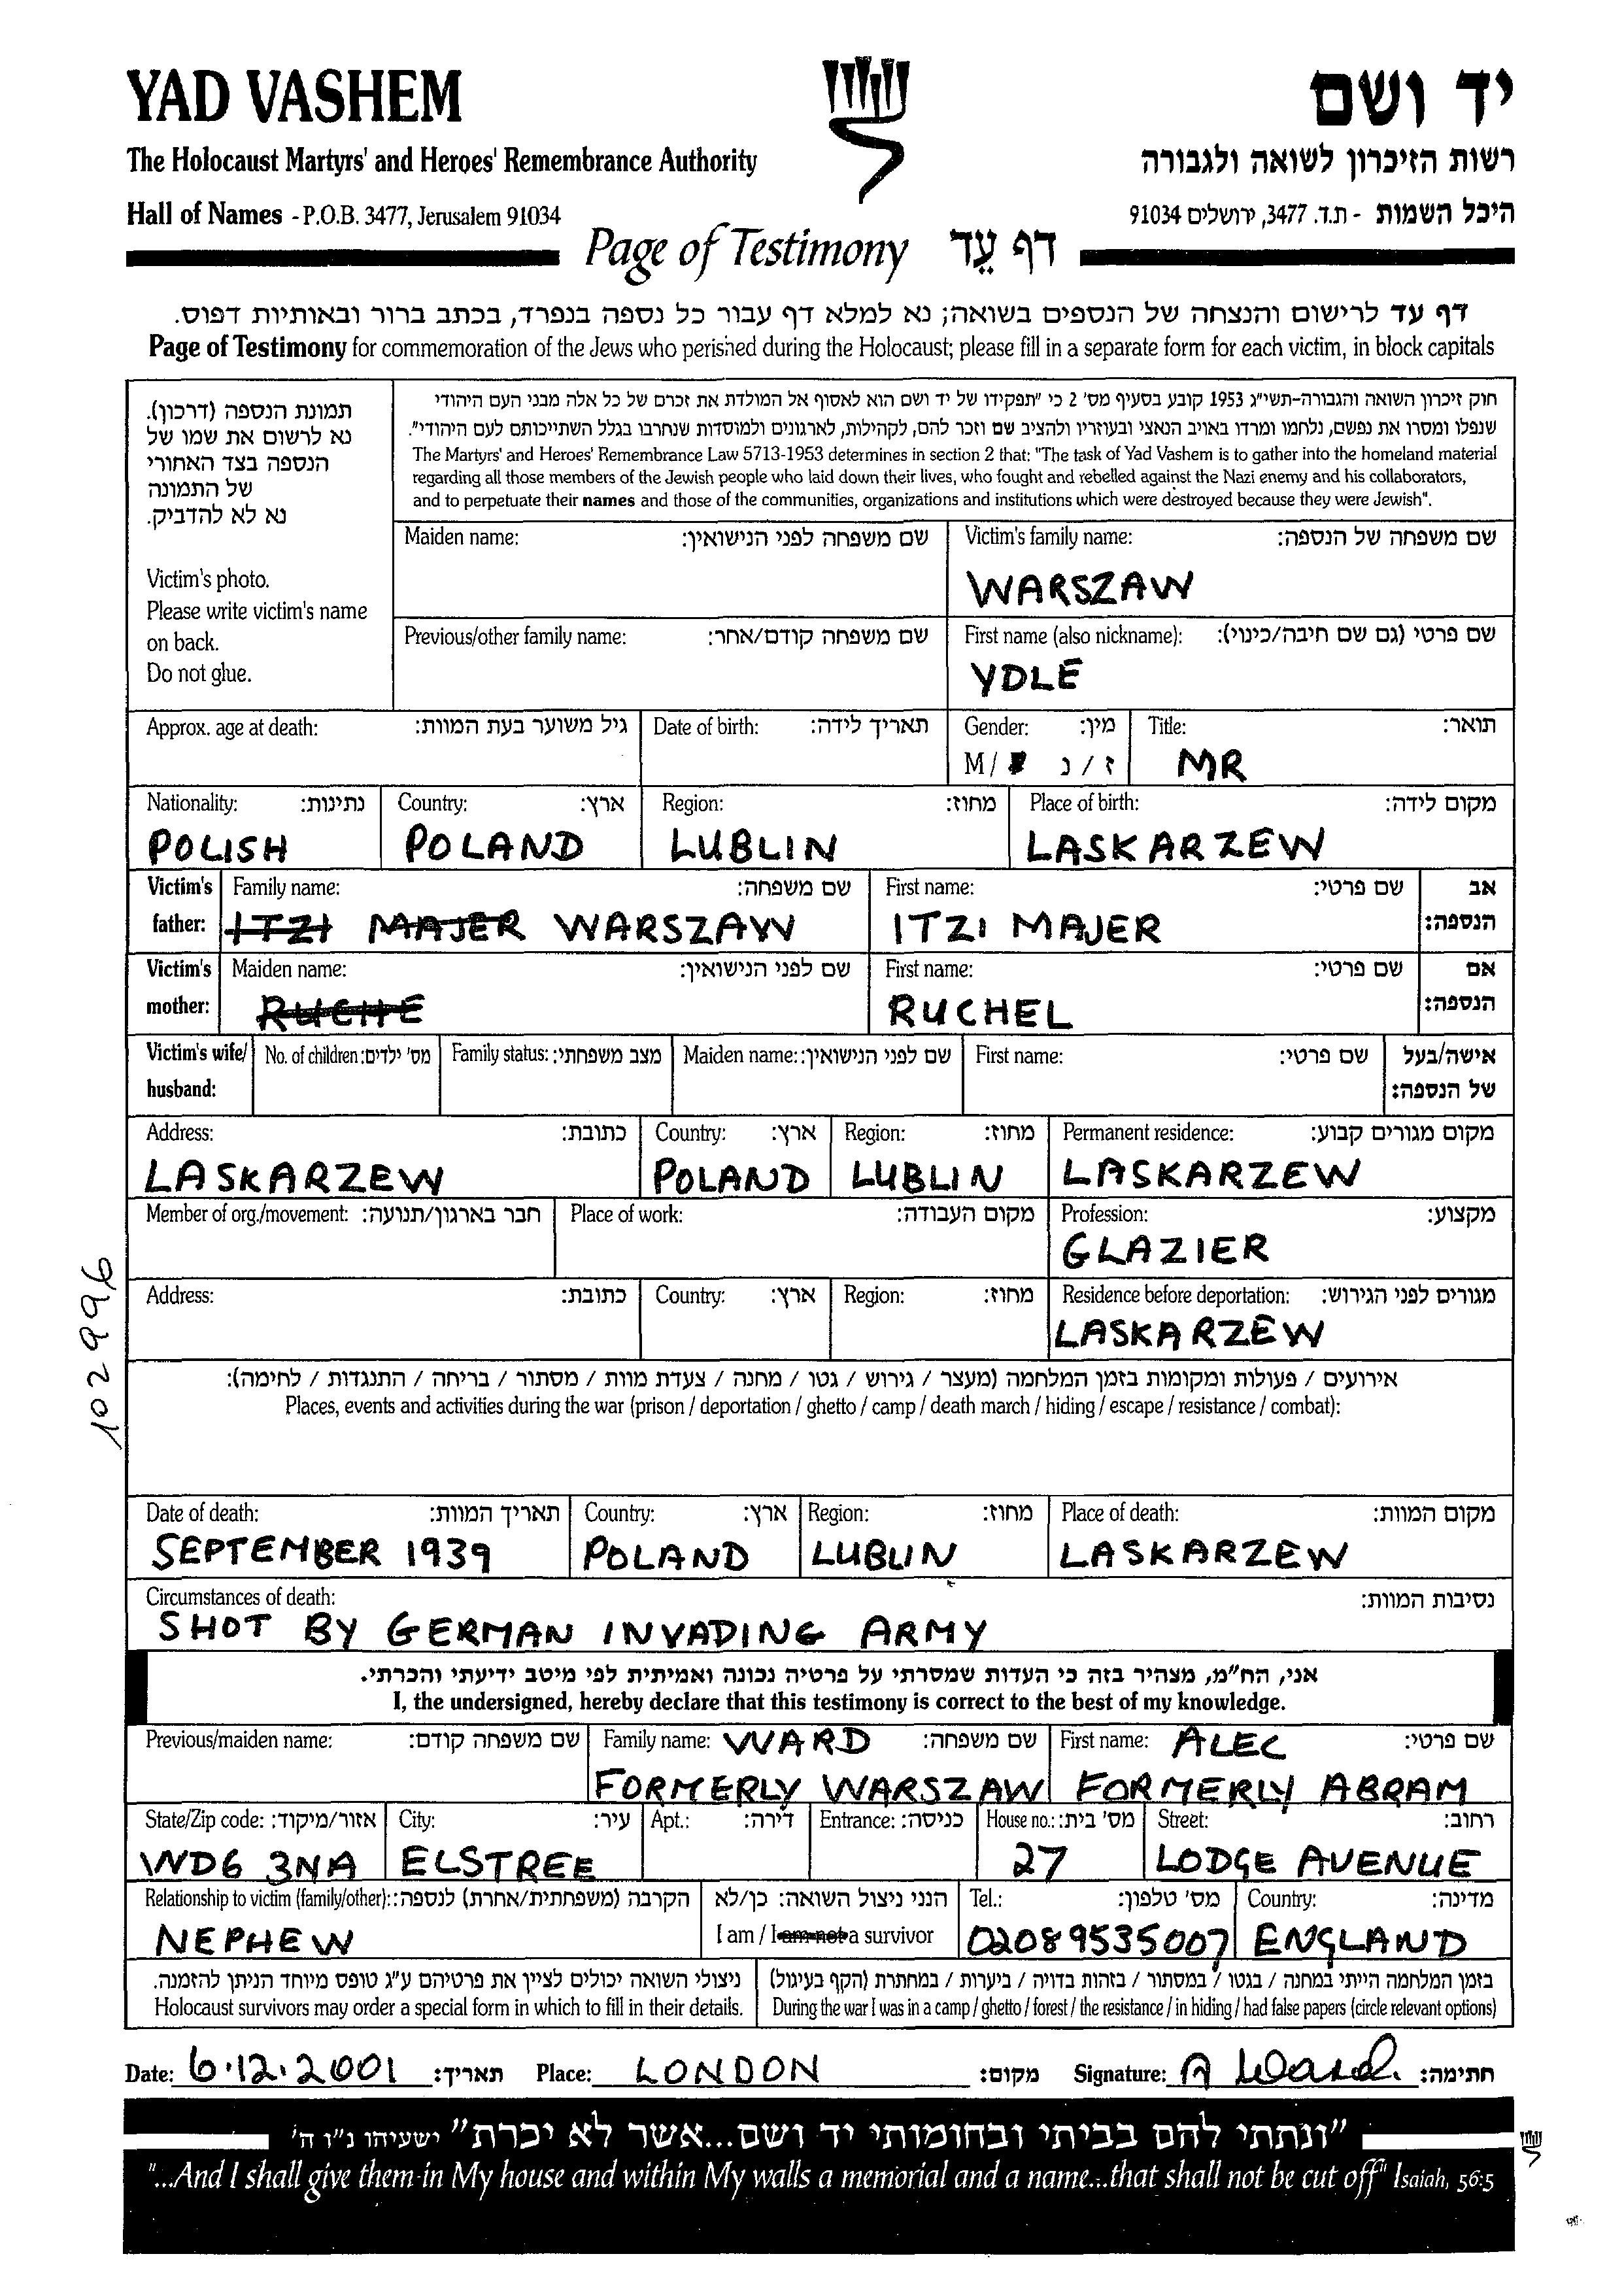 YAD VASHEM
יד ושם
The Holocaust Martyrs' and Heroes' Remembrance Authority
רשות הזיכרון לשואה ולגבורה
Hall of Names - P.O.B. 3477, Jerusalem 91034
היכל השמות - ת.ד. 3477, ירושלים 91034
Page of Testimony דף עֵד
דף עד לרישום והנצחה של הנספים בשואה; נא למלא דף עבור כל נספה בנפרד, בכתב ברור ובאותיות דפוס.
Page of Testimony for commemoration of the Jews who perished during the Holocaust; please fill in a separate form for each victim, in block capitals
תמונת הנספה (דרכון).
נא לרשום את שמו של
הנספה בצד האחורי
של התמונה
נא לא להדביק.
Victim's photo.
Please write victim's name
on back.
Do not glue.
חוק זיכרון השואה והגבורה-תשי"ג 1953 קובע בסעיף מס' 2 כי "תפקידו של יד ושם הוא לאסוף אל המולדת את זכרם של כל אלה מבני העם היהודי
שנפלו ומסרו את נפשם, נלחמו ומרדו באויב הנאצי ובעוזריו ולהציב שם וזכר להם, לקהילות, לארגונים ולמוסדות שנחרבו בגלל השתייכותם לעם היהודי".
The Martyrs' and Heroes' Remembrance Law 5713-1953 determines in section 2 that: "The task of Yad Vashem is to gather into the homeland material
regarding all those members of the Jewish people who laid down their lives, who fought and rebelled against the Nazi enemy and his collaborators,
and to perpetuate their names and those of the communities, organizations and institutions which were destroyed because they were Jewish".
Maiden name: שם משפחה לפני הנישואין:
Victim's family name: שם משפחה של הנספה:
WARSZAW
Previous/other family name: שם משפחה קודם/אחר:
First name (also nickname): שם פרטי (גם שם חיבה/כינוי):
YDLE
Approx. age at death: גיל משוער בעת המוות:
Date of birth: תאריך לידה:
Gender: מין:
M / ז / נ
Title: תואר:
MR
Nationality: נתינות:
POLISH
Country: ארץ:
POLAND
Region: מחוז:
LUBLIN
Place of birth: מקום לידה:
LASKARZEW
Victim's father:
Family name: שם משפחה:
ITZI MAJER WARSZAW
First name: שם פרטי:
ITZI MAJER
אב הנספה:
Victim's mother:
Maiden name: שם לפני הנישואין:
RUCHE
First name: שם פרטי:
RUCHEL
אם הנספה:
Victim's wife/ husband:
No. of children: מס' ילדים:
Family status: מצב משפחתי:
Maiden name: שם לפני הנישואין:
First name: שם פרטי:
אישה/בעל של הנספה:
Address: כתובת:
LASKARZEW
Country: ארץ:
POLAND
Region: מחוז:
LUBLIN
Permanent residence: מקום מגורים קבוע:
LASKARZEW
Member of org./movement: חבר בארגון/תנועה:
Place of work: מקום העבודה:
Profession: מקצוע:
GLAZIER
Address: כתובת:
Country: ארץ:
Region: מחוז:
Residence before deportation: מגורים לפני הגירוש:
LASKARZEW
102996
אירועים / פעולות ומקומות בזמן המלחמה (מעצר / גירוש / גטו / מחנה / צעדת מוות / מסתור / בריחה / התנגדות / לחימה):
Places, events and activities during the war (prison / deportation / ghetto / camp / death march / hiding / escape / resistance / combat):
Date of death: תאריך המוות:
SEPTEMBER 1939
Country: ארץ:
POLAND
Region: מחוז:
LUBLIN
Place of death: מקום המוות:
LASKARZEW
Circumstances of death: נסיבות המוות:
SHOT BY GERMAN INVADING ARMY
אני, הח"מ, מצהיר בזה כי העדות שמסרתי על פרטיה נכונה ואמיתית לפי מיטב ידיעתי והכרתי.
I, the undersigned, hereby declare that this testimony is correct to the best of my knowledge.
Previous/maiden name: שם משפחה קודם:
Family name: WARD שם משפחה:
FORMERLY WARSZAW
First name: ALEC שם פרטי:
FORMERLY ABRAM
State/Zip code: אזור/מיקוד:
WD6 3NA
City: עיר:
ELSTREE
Apt.: דירה:
Entrance: כניסה:
House no.: מס' בית:
27
Street: רחוב:
LODGE AVENUE
Relationship to victim (family/other): הקרבה (משפחתית/אחרת) לנספה:
NEPHEW
הנני ניצול השואה: כן/לא
I am / I am not a survivor
Tel.: מס' טלפון:
02089535007
Country: מדינה:
ENGLAND
ניצולי השואה יכולים לציין את פרטיהם ע"ג טופס מיוחד הניתן להזמנה.
Holocaust survivors may order a special form in which to fill in their details.
בזמן המלחמה הייתי במחנה / בגטו / במסתור / בזהות בדויה / ביערות / במחתרת (הקף בעיגול)
During the war I was in a camp / ghetto / forest / the resistance / in hiding / had false papers (circle relevant options)
Date: 6.12.2001 תאריך: Place: LONDON מקום: Signature: A Ward. חתימה:
"ונתתי להם בביתי ובחומותי יד ושם...אשר לא יכרת" ישעיהו נ"ו ה'
"...And I shall give them in My house and within My walls a memorial and a name...that shall not be cut off" Isaiah, 56:5